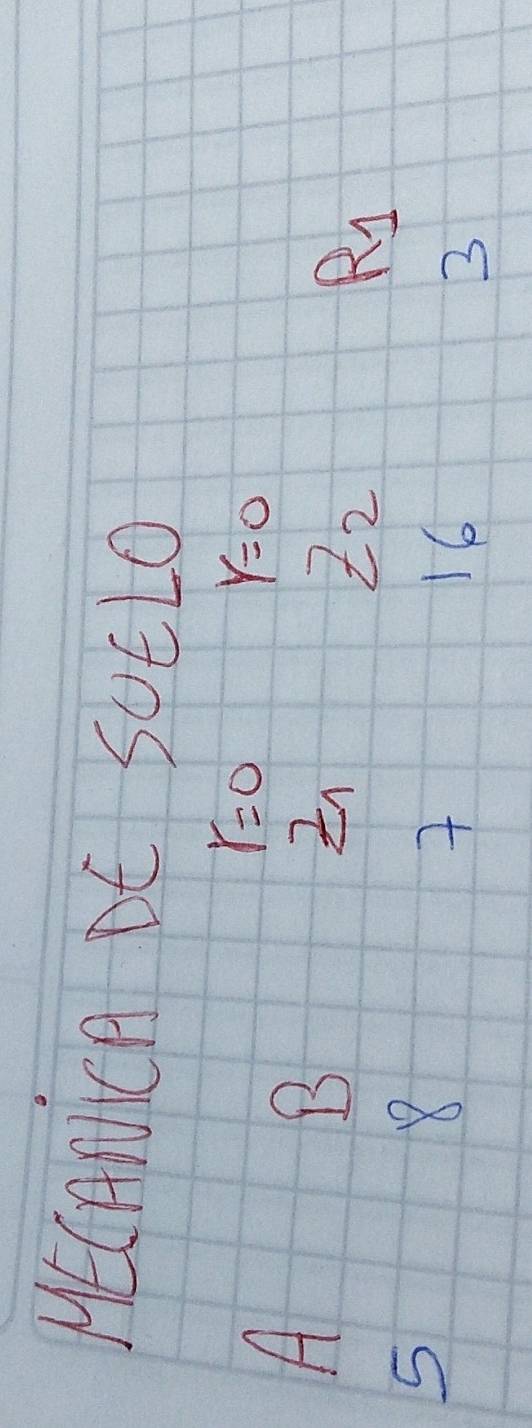 MECANICA DE SUELO
r=0 r=0
A B Z1 Z2 R1
5 8 7 16 3